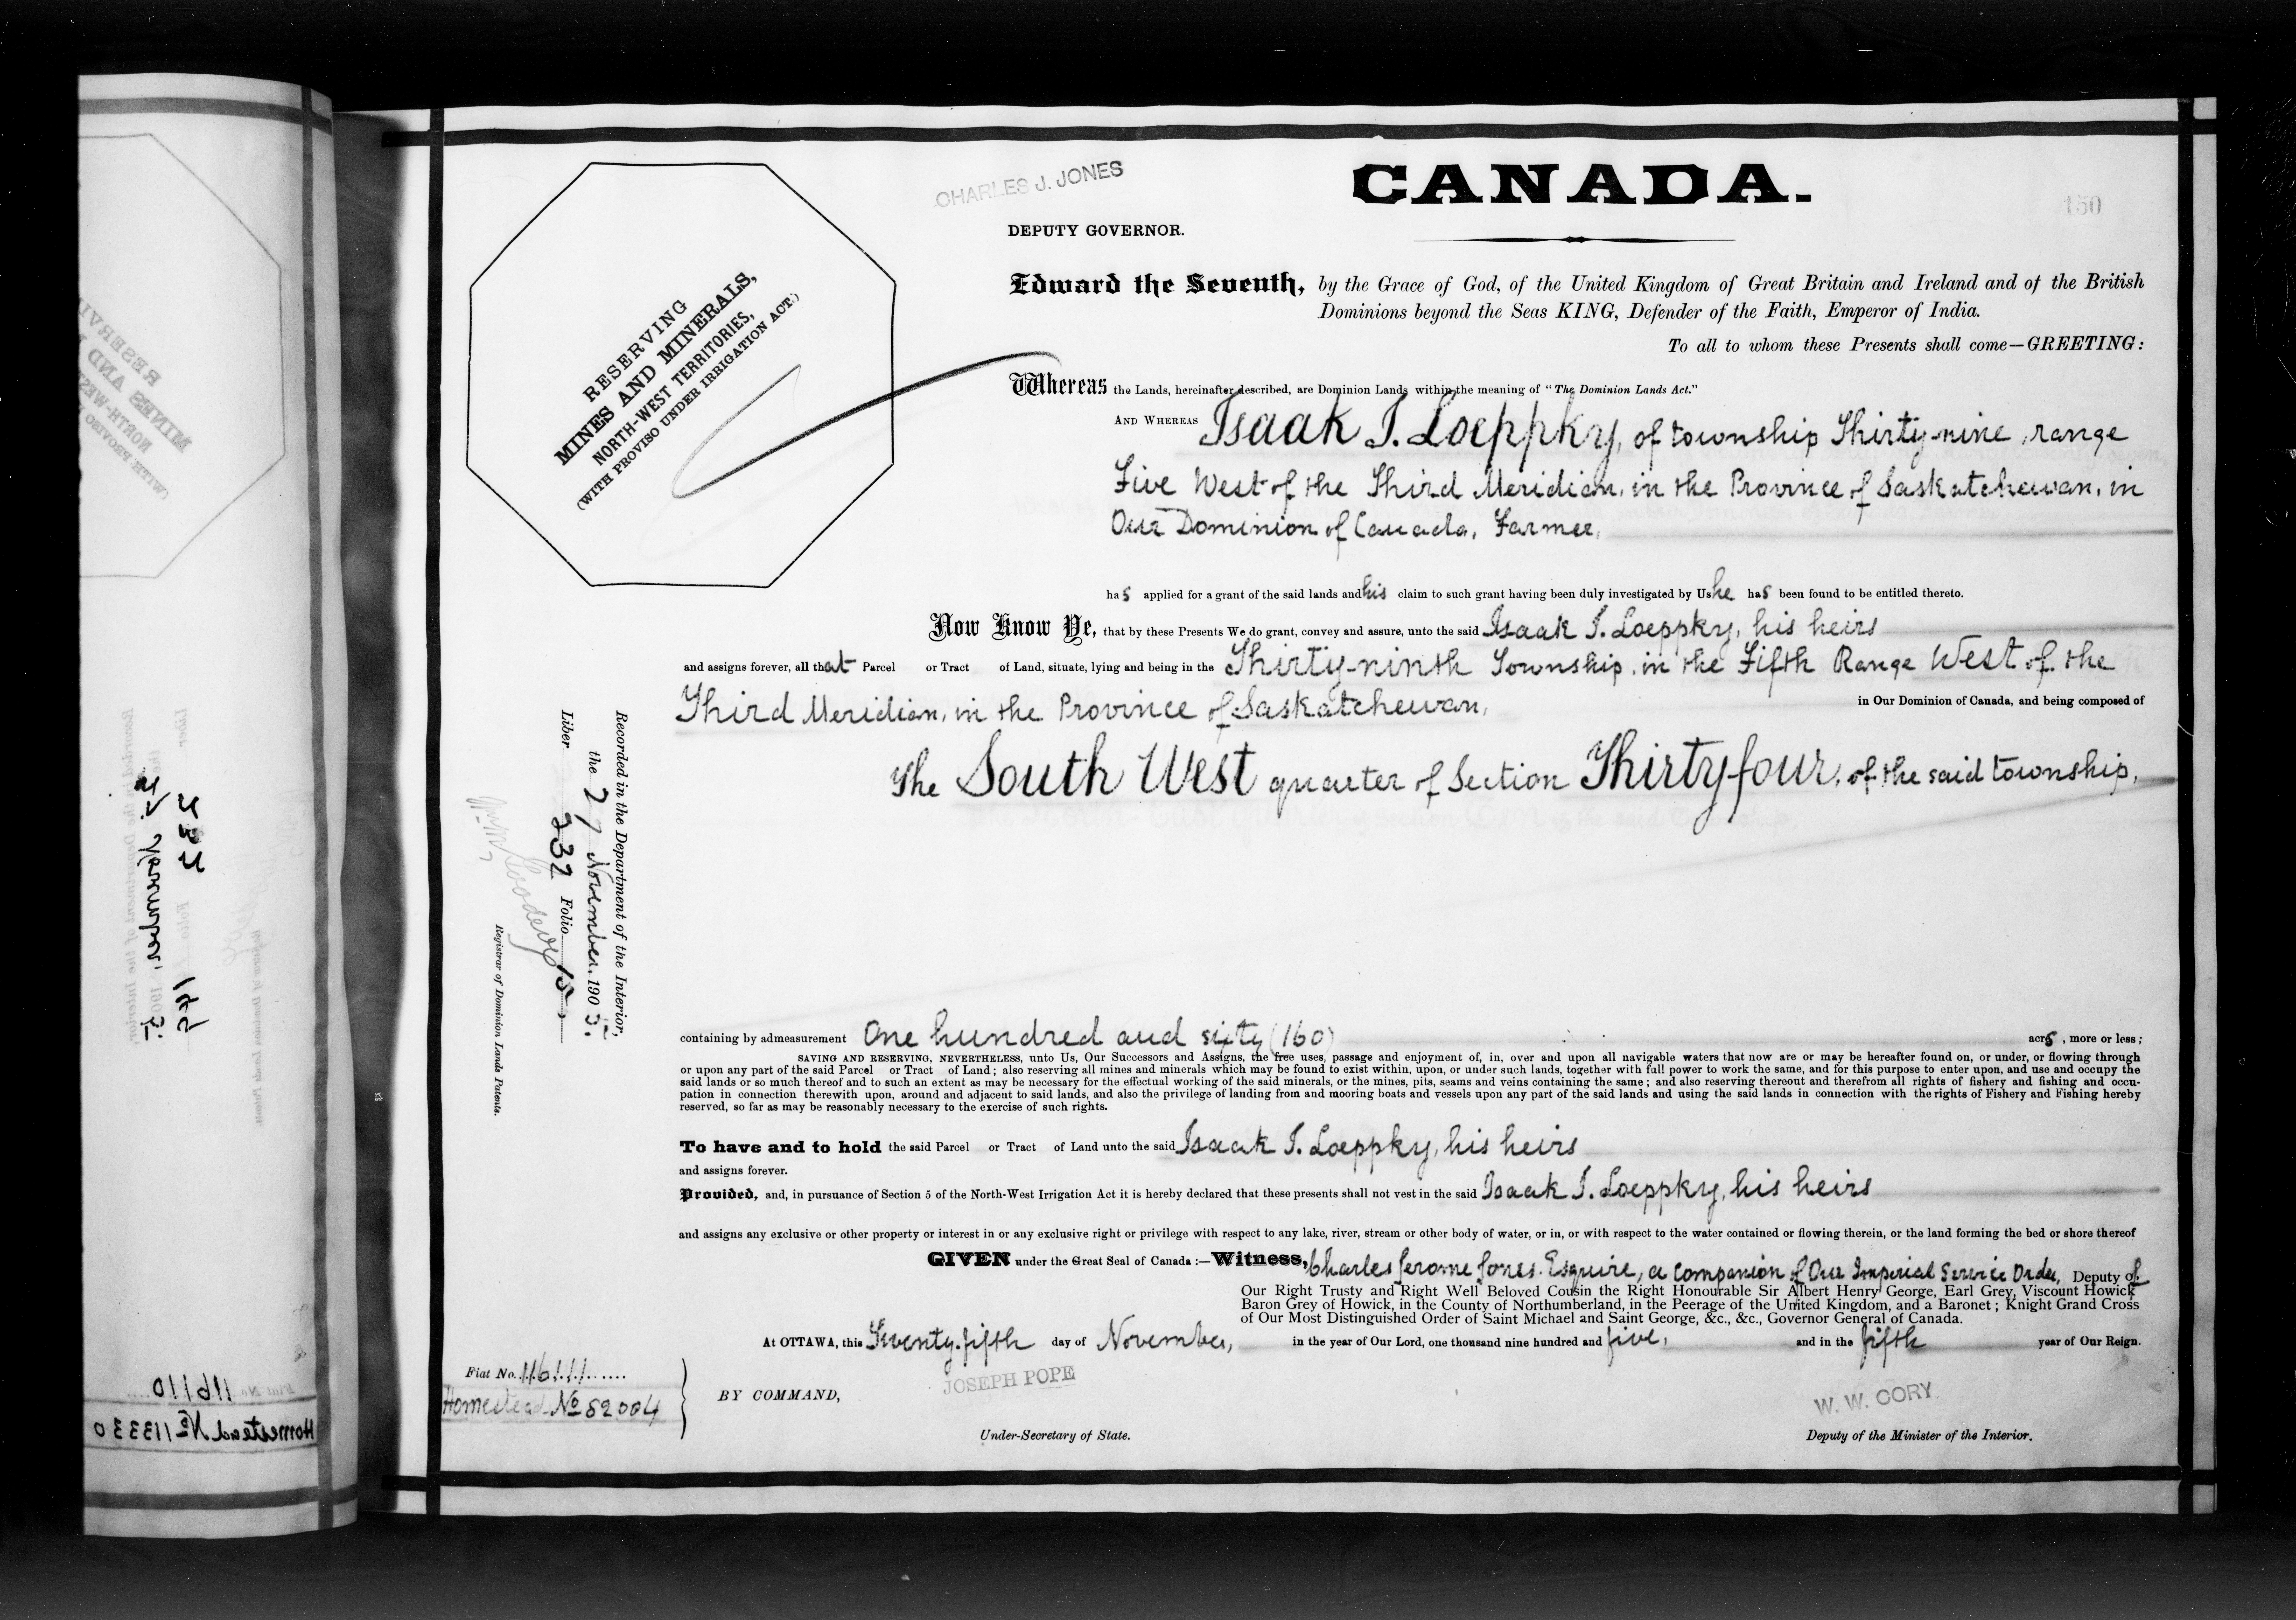 CANADA.
CHARLES J. JONES
150
DEPUTY GOVERNOR.
RESERVING
MINES AND MINERALS,
NORTH-WEST TERRITORIES,
(WITH PROVISO UNDER IRRIGATION ACT.)
Edward the Seventh, by the Grace of God, of the United Kingdom of Great Britain and Ireland and of the British
Dominions beyond the Seas KING, Defender of the Faith, Emperor of India.
To all to whom these Presents shall come—GREETING:
Whereas the Lands, hereinafter described, are Dominion Lands within the meaning of "The Dominion Lands Act."
AND WHEREAS Isaak I. Loeppky, of township Thirty-nine, range
Five West of the Third Meridian, in the Province of Saskatchewan, in
Our Dominion of Canada, Farmer,
has applied for a grant of the said lands and his claim to such grant having been duly investigated by Us he has been found to be entitled thereto.
Now Know Ye, that by these Presents We do grant, convey and assure, unto the said Isaak I. Loeppky, his heirs
and assigns forever, all that Parcel or Tract of Land, situate, lying and being in the Thirty-ninth Township, in the Fifth Range West of the
Third Meridian, in the Province of Saskatchewan, in Our Dominion of Canada, and being composed of
The South West quarter of Section Thirty-four, of the said township,
containing by admeasurement One hundred and sixty (160) acrs, more or less;
SAVING AND RESERVING, NEVERTHELESS, unto Us, Our Successors and Assigns, the free uses, passage and enjoyment of, in, over and upon all navigable waters that now are or may be hereafter found on, or under, or flowing through
or upon any part of the said Parcel or Tract of Land; also reserving all mines and minerals which may be found to exist within, upon, or under such lands, together with full power to work the same, and for this purpose to enter upon, and use and occupy the
said lands or so much thereof and to such an extent as may be necessary for the effectual working of the said minerals, or the mines, pits, seams and veins containing the same; and also reserving thereout and therefrom all rights of fishery and fishing and occu-
pation in connection therewith upon, around and adjacent to said lands, and also the privilege of landing from and mooring boats and vessels upon any part of the said lands and using the said lands in connection with the rights of Fishery and Fishing hereby
reserved, so far as may be reasonably necessary to the exercise of such rights.
To have and to hold the said Parcel or Tract of Land unto the said Isaak I. Loeppky, his heirs
and assigns forever.
Provided, and, in pursuance of Section 5 of the North-West Irrigation Act it is hereby declared that these presents shall not vest in the said Isaak I. Loeppky, his heirs
and assigns any exclusive or other property or interest in or any exclusive right or privilege with respect to any lake, river, stream or other body of water, or in, or with respect to the water contained or flowing therein, or the land forming the bed or shore thereof
GIVEN under the Great Seal of Canada:—Witness, Charles Jerome Jones, Esquire, a Companion of Our Imperial Service Order, Deputy of
Our Right Trusty and Right Well Beloved Cousin the Right Honourable Sir Albert Henry George, Earl Grey, Viscount Howick
Baron Grey of Howick, in the County of Northumberland, in the Peerage of the United Kingdom, and a Baronet; Knight Grand Cross
of Our Most Distinguished Order of Saint Michael and Saint George, &c., &c., Governor General of Canada.
At OTTAWA, this Twenty-fifth day of November, in the year of Our Lord, one thousand nine hundred and five, and in the fifth year of Our Reign.
Fiat No. 116111
Homestead No 82004
BY COMMAND,
JOSEPH POPE
Under-Secretary of State.
W. W. CORY
Deputy of the Minister of the Interior.
Recorded in the Department of the Interior,
the 27 November, 1905.
Liber 232 Folio 150
Registrar of Dominion Lands Patents.
Fiat No. 116110
Homestead No 113330